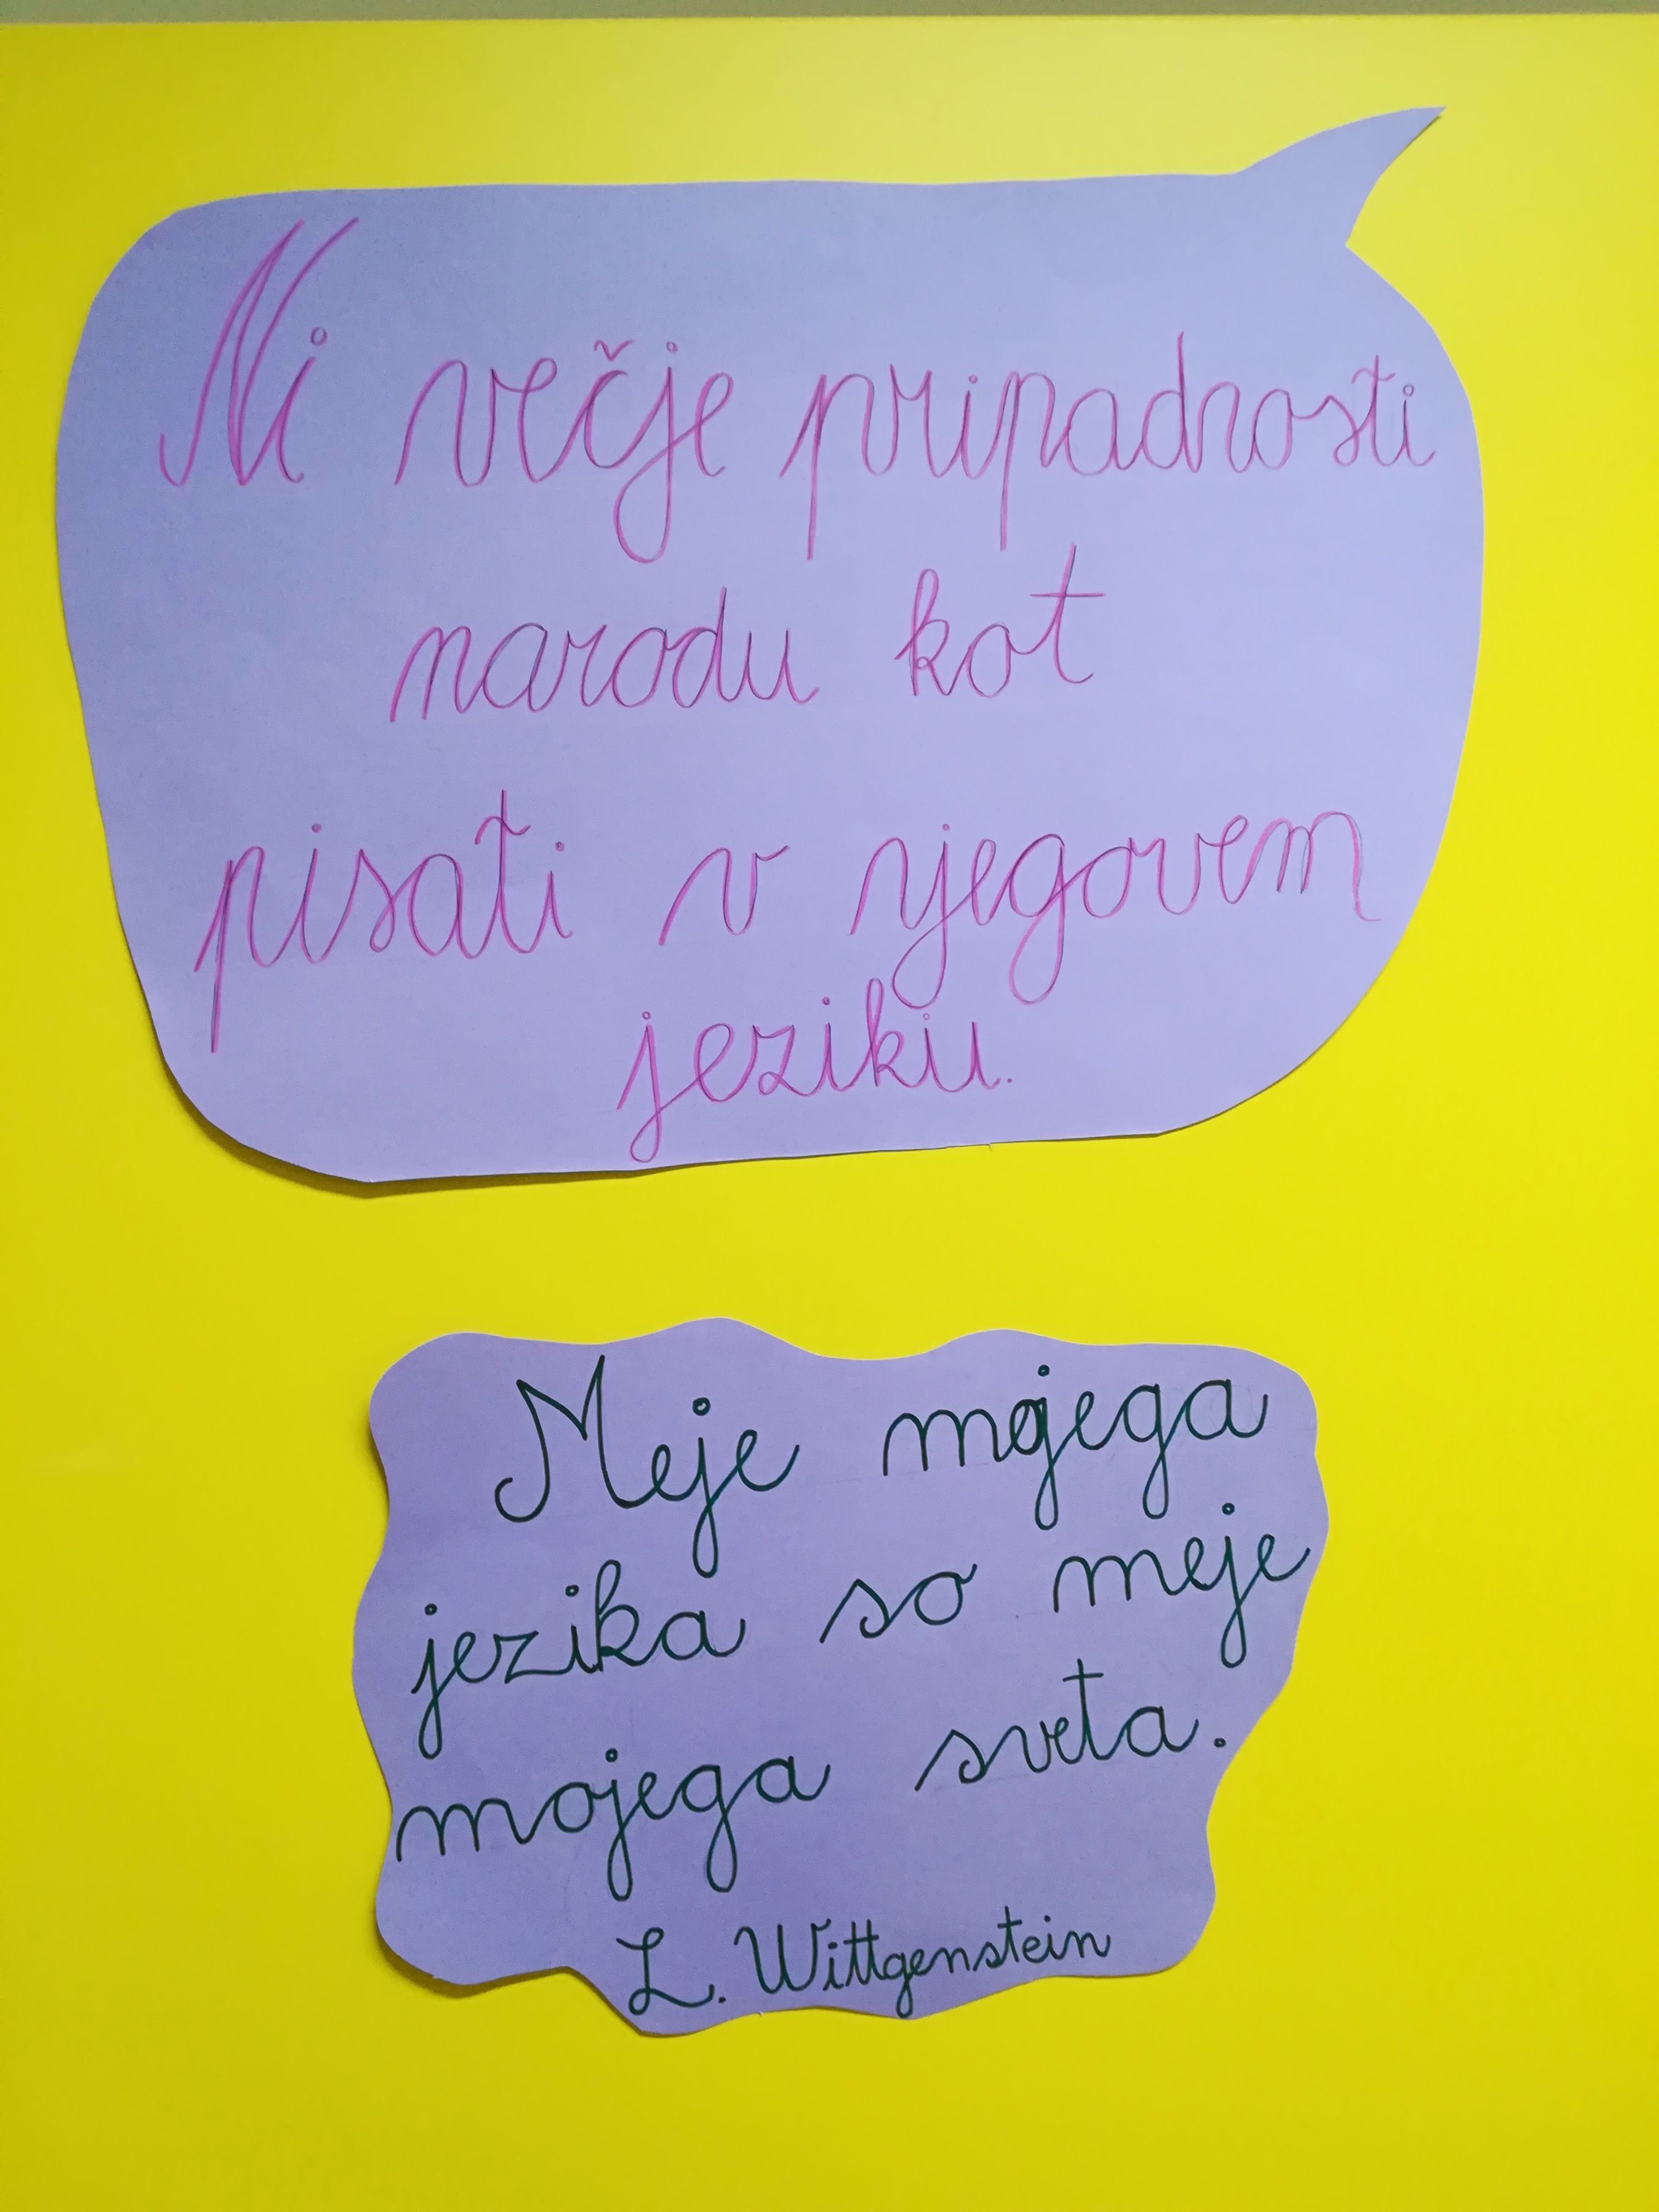 Ni večje pripadnosti
narodu kot
pisati v njegovem
jeziku.
Meje mojega
jezika so meje
mojega sveta.
L. Wittgenstein